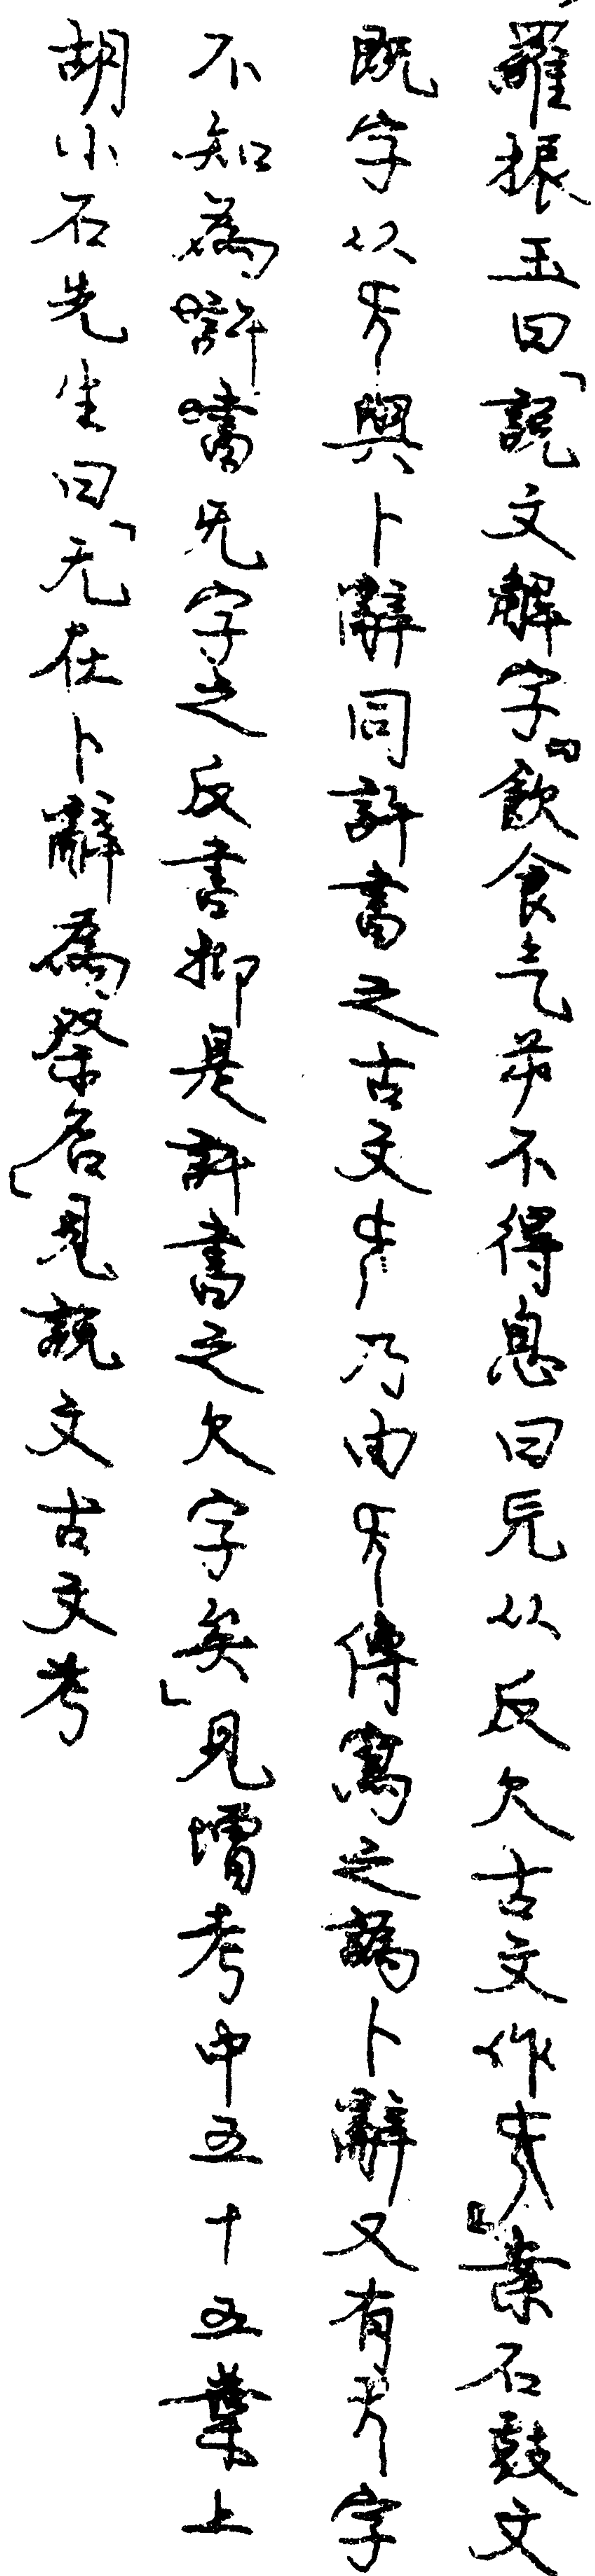 羅振玉曰「說文解字『飲食气屰不得息曰旡从反欠古文作𣠮』案石鼓文
既字从旡與卜辭同許書之古文乃由傳寫之譌卜辭又有字
不知為許書旡字之反書抑是許書之欠字矣」見增考中五十五葉上
胡小石先生曰「旡在卜辭為祭名」見說文古文考